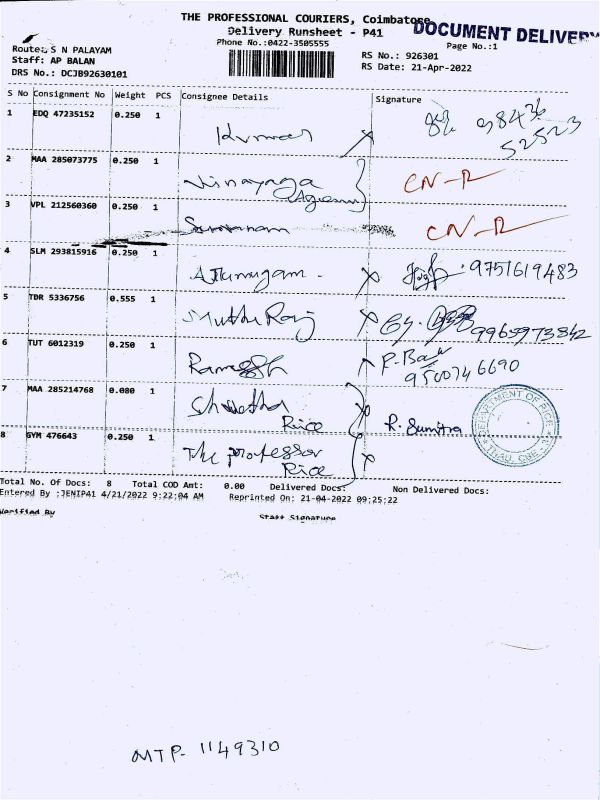 THE PROFESSIONAL COURIERS, Coimbatore
DOCUMENT DELIVERY
Delivery Runsheet - P41
Phone No.:0422-3505555
Page No.:1
Route: S N PALAYAM
Staff: AP BALAN
DRS No.: DCJB92630101
RS No.: 926301
RS Date: 21-Apr-2022
S No Consignment No Weight PCS Consignee Details Signature
1 EDQ 47235152 0.250 1 Kumar
2 MAA 285073775 0.250 1 Vinayaga CN-R
3 VPL 212560360 0.250 1 CN-R
4 SLM 293815916 0.250 1 Arumugam - 9751619483
5 TDR 5336756 0.555 1 Muthu Raj 9965973842
6 TUT 6012319 0.250 1 Ramesh
9500746690
7 MAA 285214768 0.080 1
Rice R. Sumitra
DEPARTMENT OF RICE
8 GYM 476643 0.250 1 The professor
Rice
Total No. Of Docs: 8 Total COD Amt: 0.00 Delivered Docs: Non Delivered Docs:
Entered By :JENIP41 4/21/2022 9:22:04 AM Reprinted On: 21-04-2022 09:25:22
Verified By Staff Signature
MTP- 1149310